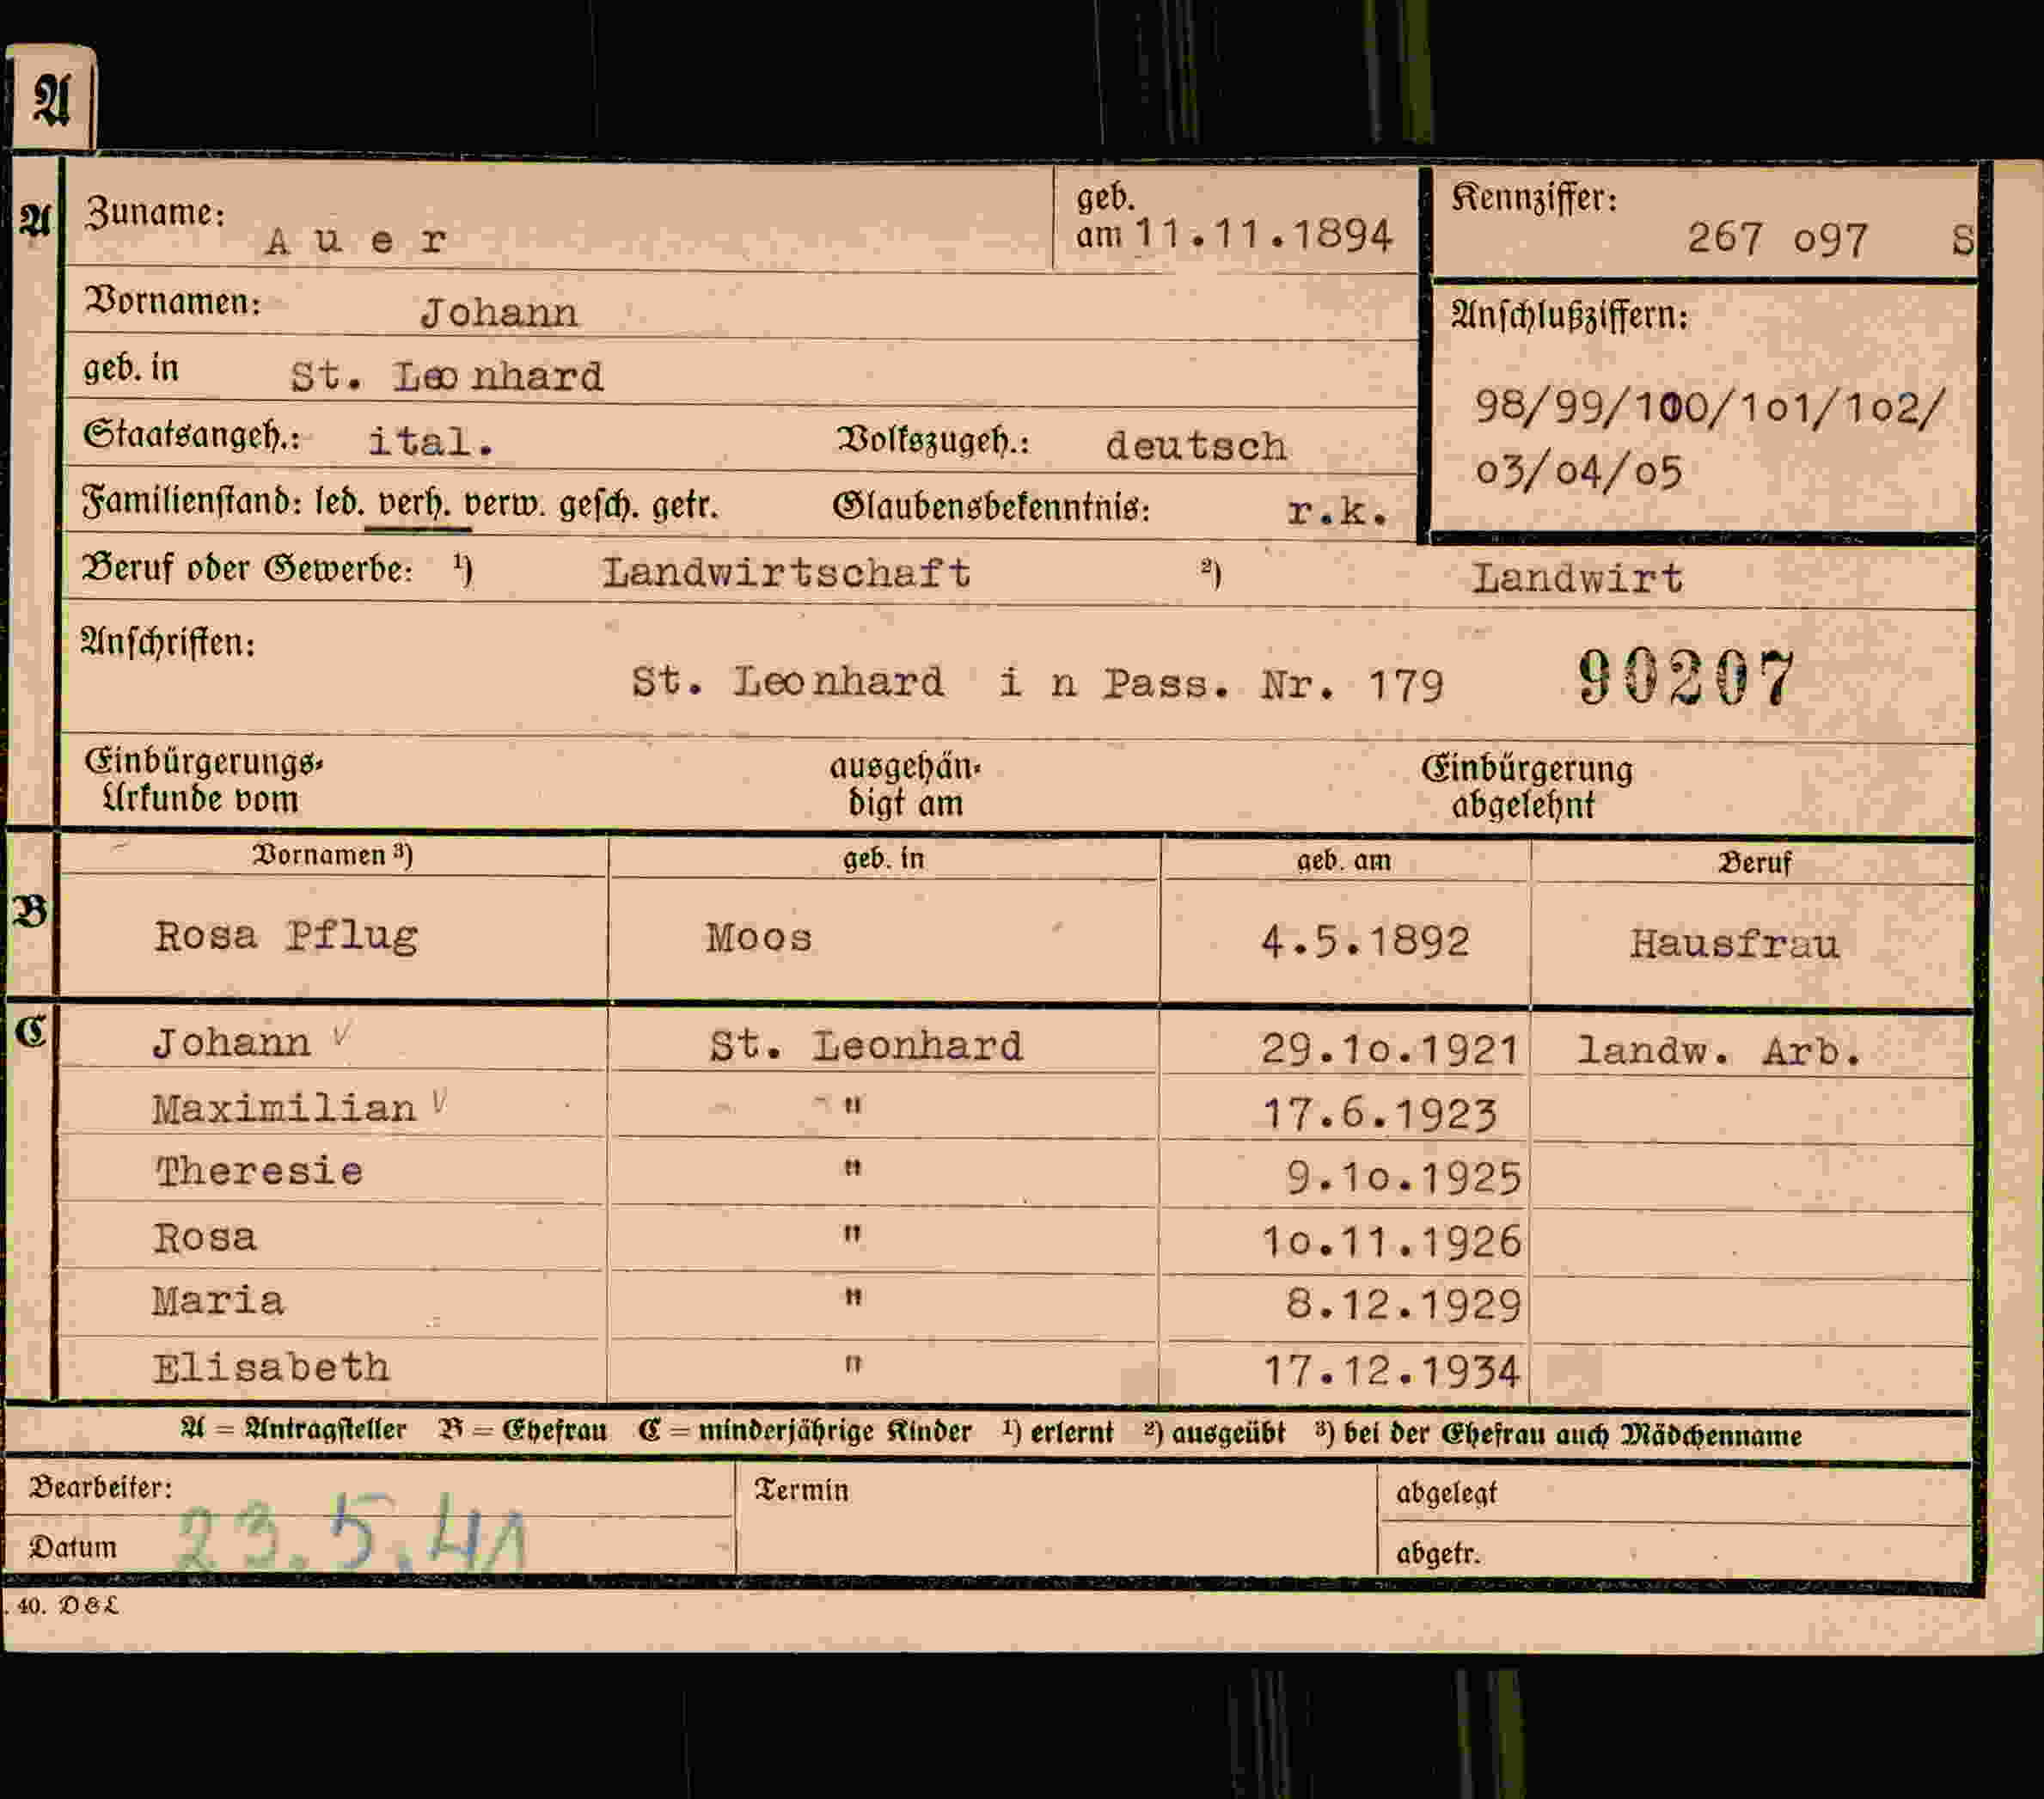 A
A Zuname: A u e r geb. am 11.11.1894 Kennziffer: 267 o97 S
Vornamen: Johann Anschlußziffern:
geb. in St. Leonhard 98/99/100/1o1/1o2/
Staatsangeh.: ital. Volkszugeh.: deutsch o3/o4/o5
Familienstand: led. verh. verw. gesch. getr. Glaubensbekenntnis: r.k.
Beruf oder Gewerbe: ¹) Landwirtschaft ²) Landwirt
Anschriften:
St. Leonhard i n Pass. Nr. 179 90207
Einbürgerungs- ausgehän- Einbürgerung
Urkunde vom digt am abgelehnt
Vornamen ³) geb. in geb. am Beruf
B Rosa Pflug Moos 4.5.1892 Hausfrau
C Johann V St. Leonhard 29.1o.1921 landw. Arb.
Maximilian V " 17.6.1923
Theresie " 9.1o.1925
Rosa " 1o.11.1926
Maria " 8.12.1929
Elisabeth " 17.12.1934
A = Antragsteller B = Ehefrau C = minderjährige Kinder ¹) erlernt ²) ausgeübt ³) bei der Ehefrau auch Mädchenname
Bearbeiter: Termin abgelegt
Datum 23.5.41 abgetr.
. 40. D & L